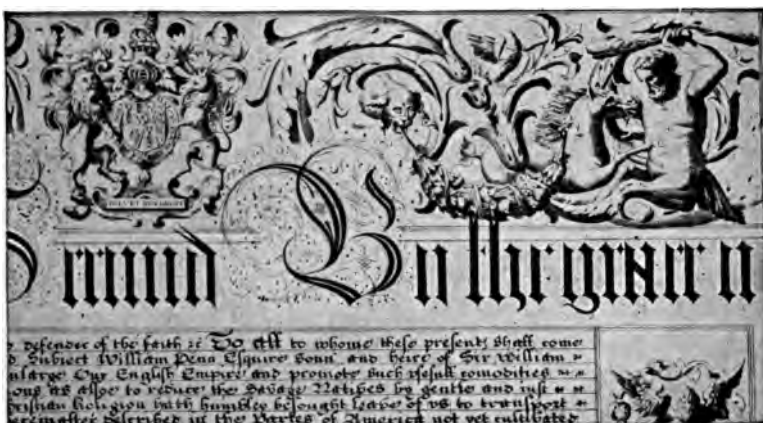 DIEU ET MON DROIT
By the grace
defender of the faith &c To all to whome these presents shall come
Subiect William Penn Esquire Sonn and heire of Sir William
nlarge Our English Empire and promote such vsefull comodities
ous as alsoe to reduce the Savage Natives by gentle and iust
hristian Religion hath humbley besought leave of vs to transport
ereinafter described in the Partes of America not yet cultivated